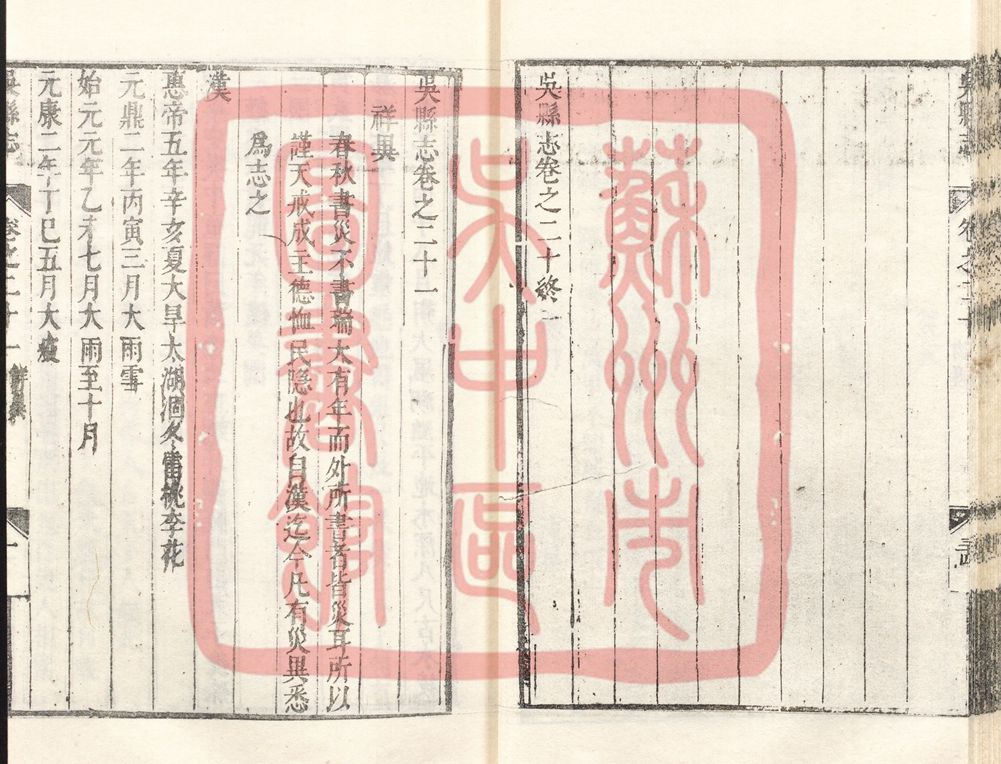 吳縣志卷之二十終
吳縣志卷之二十一
祥異
春秋書災不書瑞大有年而外所書者皆災耳所以
謹天戒成主德恤民隱也故自漢迄今凡有災異悉
爲志之
漢
惠帝五年辛亥夏大旱太湖涸冬雷桃李花
元鼎二年丙寅三月大雨雪
始元元年乙未七月大雨至十月
元康二年丁巳五月大疫
吳縣志
卷之二十一
祥異
一
蘇州市
吳中區
圖書館